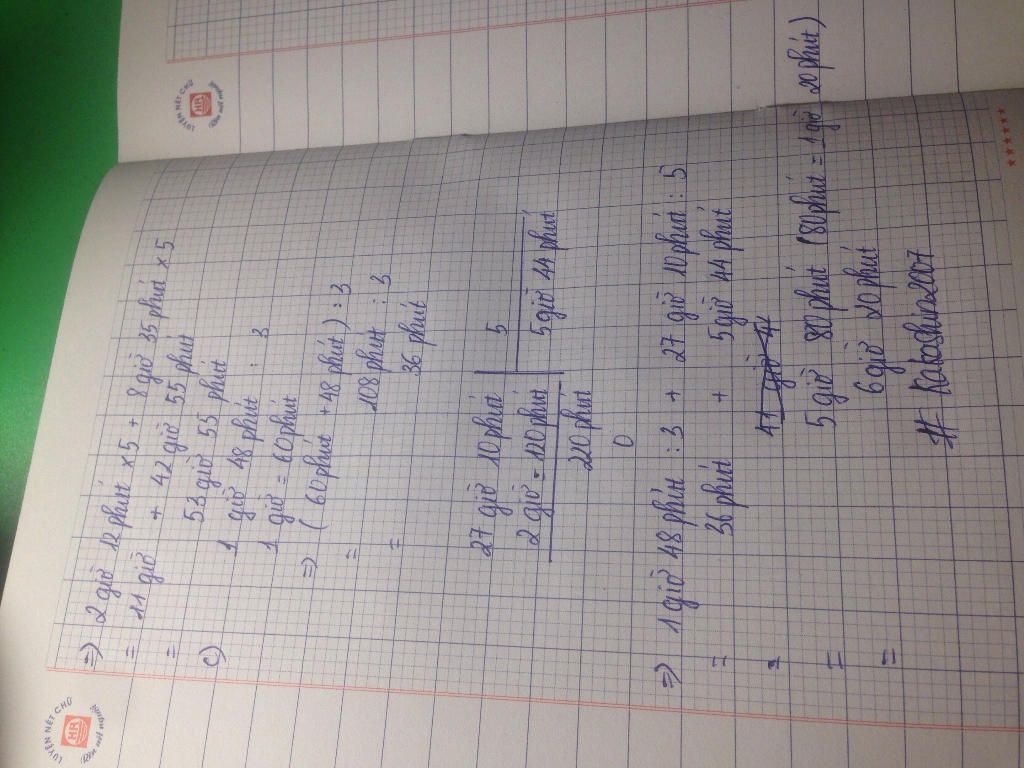 LUYỆN NÉT CHỮ
HR
Rèn nết người
LUYỆN NÉT CHỮ
HR
=) 2 giờ 12 phút x 5 + 8 giờ 35 phút x 5
= 11 giờ + 42 giờ 55 phút
= 53 giờ 55 phút
c) 1 giờ 48 phút : 3
1 giờ = 60 phút
=) ( 60 phút + 48 phút ) : 3
= 108 phút : 3
= 36 phút
27 giờ 10 phút 5
2 giờ = 120 phút 5 giờ 44 phút
220 phút
0
=) 1 giờ 48 phút : 3 + 27 giờ 10 phút : 5
= 36 phút + 5 giờ 44 phút
=
= 5 giờ 80 phút (80 phút = 1 giờ 20 phút)
= 6 giờ 20 phút